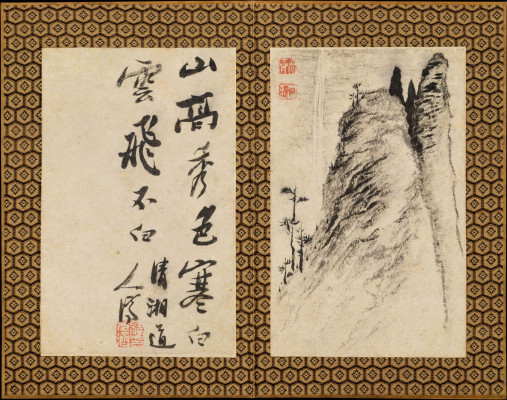 山高秀色寒白
雲飛不
清湘道
人濟